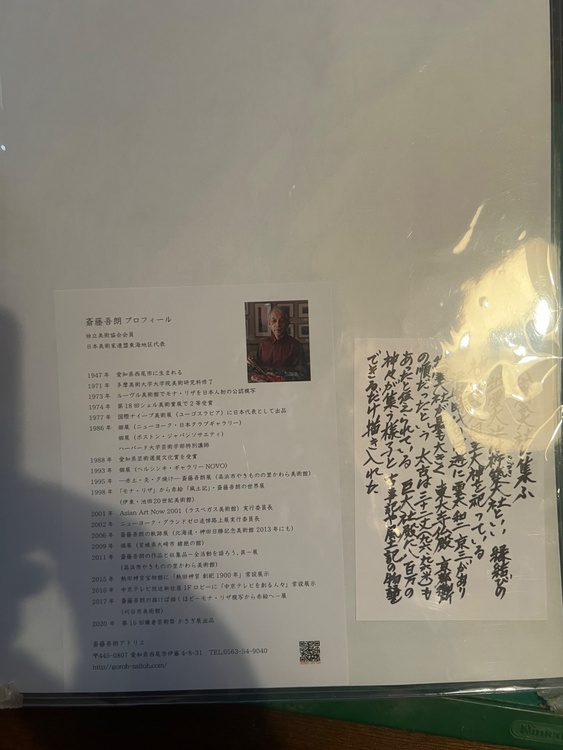 斎藤吾朗 プロフィール
独立美術協会会員
日本美術家連盟東海地区代表
1947 年 愛知県西尾市に生まれる
1971 年 多摩美術大学大学院美術研究科修了
1973 年 ルーヴル美術館でモナ・リザを日本人初の公認模写
1974 年 第 18 回シェル美術賞展で 2 等受賞
1977 年 国際ナイーブ美術展（ユーゴスラビア）に日本代表として出品
1986 年 個展（ニューヨーク・日本クラブギャラリー）
個展（ボストン・ジャパンソサエティ）
ハーバード大学芸術学部特別講師
1988 年 愛知県芸術選奨文化賞を受賞
1993 年 個展（ヘルシンキ・ギャラリー NOVO）
1995 年 ―赤土・炎・夕焼け― 斎藤吾朗展（高浜市やきものの里かわら美術館）
1998 年 「モナ・リザ」から赤絵「風土記」・斎藤吾朗の世界展
（伊東・池田20世紀美術館）
2001 年 Asian Art Now 2001（ラスベガス美術館）実行委員長
2002 年 ニューヨーク・グランドゼロ追悼路上展実行委員長
2006 年 斎藤吾朗の軌跡展（北海道・神田日勝記念美術館 2013 年にも）
2009 年 個展（宮城県大崎市
2011 年 斎藤吾朗の作品と収集品―全活動を語ろう
（高浜市やきものの里かわら美術館）
2015 年 熱田神宮宝物館に「熱田神宮 創祀 1900 年」常設展示
2016 年 中京テレビ放送新社屋 1F ロビーに「中京テレビを創る人々」常設展示
2017 年 斎藤吾朗の描けば描くほど―モナ・リザ模写から赤絵へ―展
（刈谷市美術館）
2020 年 第 16 回鎌倉芸術祭 かさぎ画廊出品
斎藤吾朗アトリエ
〒445-0807 愛知県西尾市伊藤 TEL.0563-54-9040
http://goroh-saitoh.com/
集ふ
杵築大社といい 縁結びの
大神を祀っている
雲太 和二 京三があり
出雲大社が最も大きく 東大寺大仏殿
の順だったという 太古は三十二丈（九六、九六米）も
あったと伝えられている 巨大社殿へ八百万の
神々が集う様子と 古事記や風土記の物語
できるだけ描き入れた